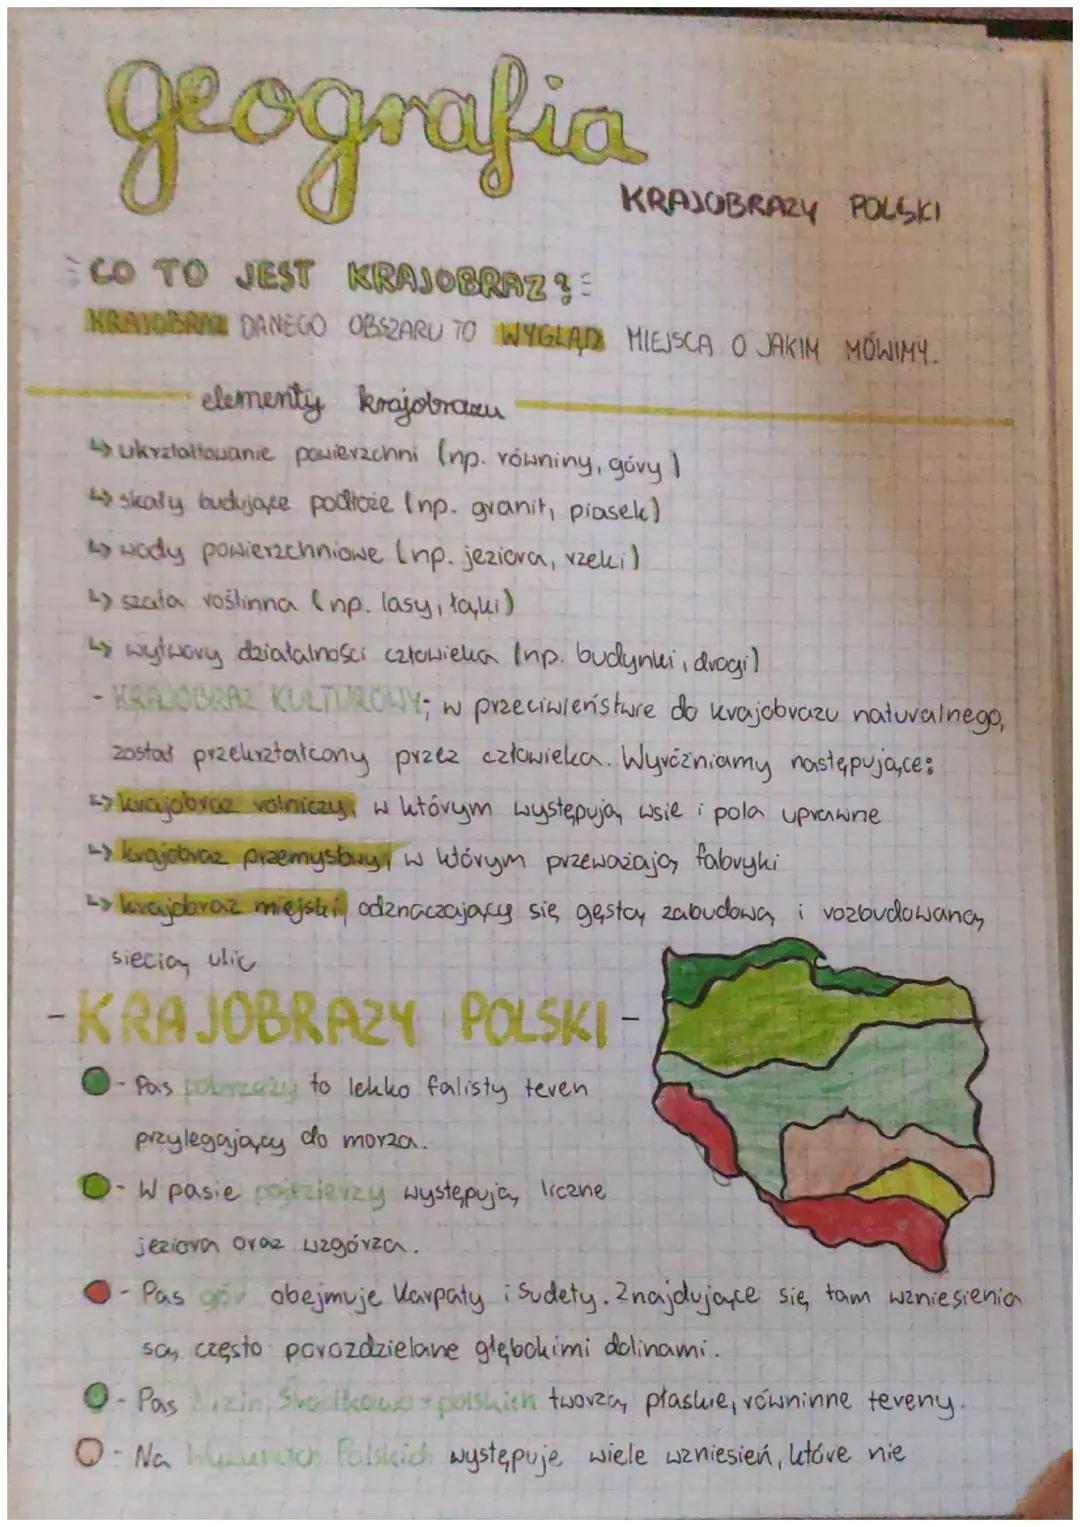 geografia
KRAJOBRAZY POLSKI
CO TO JEST KRAJOBRAZ?
KRAJOBRAZ DANEGO OBSZARU TO WYGLĄD MIEJSCA O JAKIM MÓWIMY.
elementy krajobrazu
↳ ukształtowanie powierzchni (np. równiny, góry)
↳ skały budujące podłoże (np. granit, piasek)
↳ wody powierzchniowe (np. jeziora, rzeki)
↳ szata roślinna (np. lasy, łąki)
↳ wytwory działalności człowieka (np. budynki, drogi)
- KRAJOBRAZ KULTUROWY; w przeciwieństwie do krajobrazu naturalnego,
został przekształcony przez człowieka. Wyróżniamy następujące:
↳ krajobraz rolniczy, w którym występują wsie i pola uprawne
↳ krajobraz przemysłowy, w którym przeważają fabryki
↳ krajobraz miejski, odznaczający się gęstą zabudową i rozbudowaną
siecią ulic
- KRAJOBRAZY POLSKI -
- Pas pobrzeży to lekko falisty teren
przylegający do morza.
- W pasie pojezierzy występują liczne
jeziora oraz wzgórza.
- Pas gór obejmuje Karpaty i Sudety. Znajdujące się tam wzniesienia
są często porozdzielane głębokimi dolinami.
- Pas Nizin Środkowo-polskich tworzą płaskie, równinne tereny.
- Na Wyżynach Polskich występuje wiele wzniesień, które nie